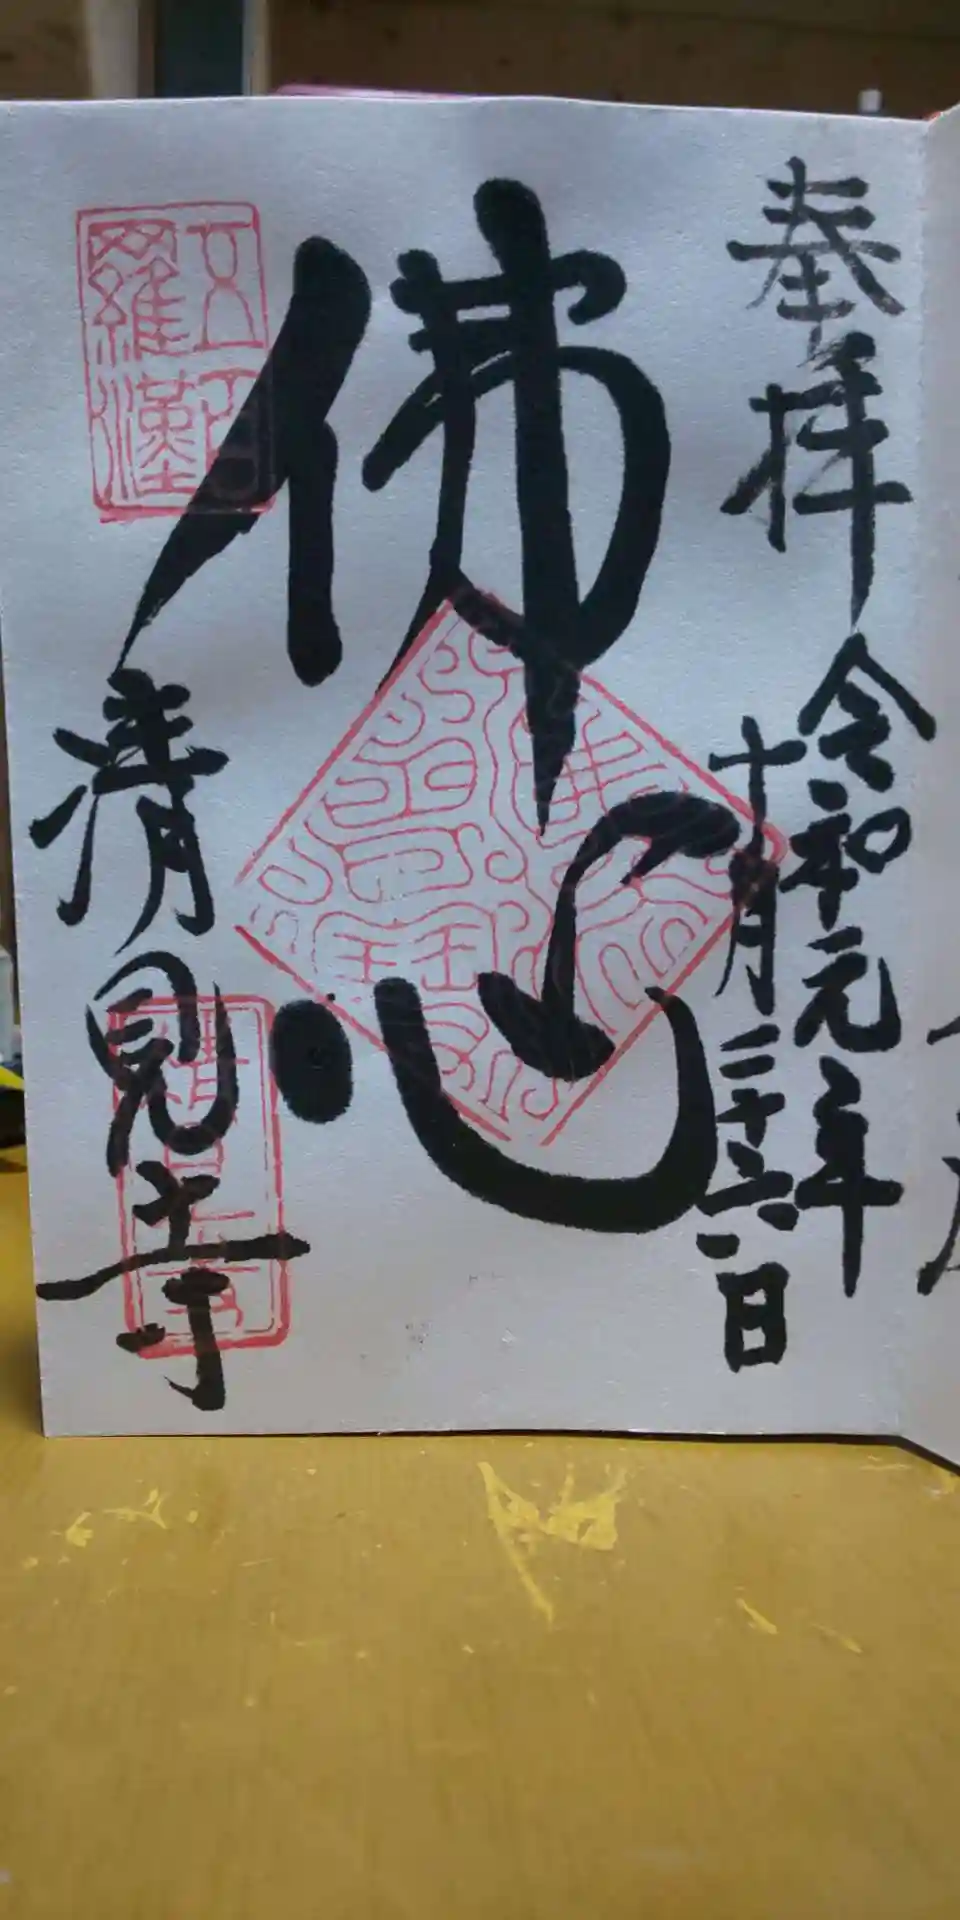 奉拝
令和元年
十月二十六日
佛心
五百羅漢
清見寺
清見寺